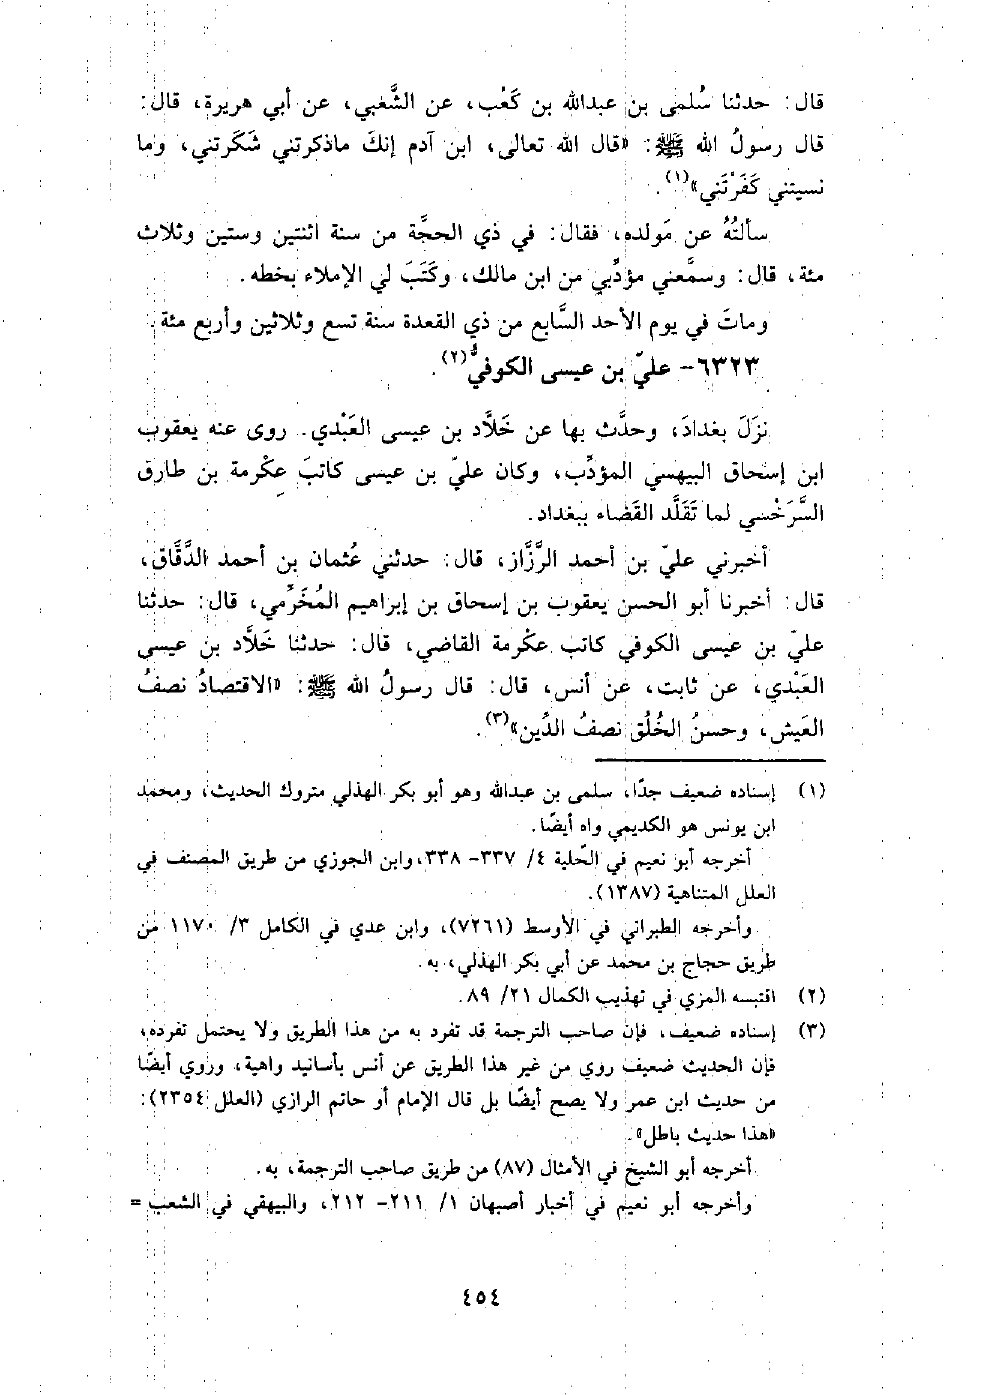 قال: حدثنا سُلمى بن عبدالله بن كَعْب، عن الشَّعْبي، عن أبي هريرة، قال:
قال رسولُ الله ﷺ: «قال الله تعالى، ابن آدم إنكَ ماذكرتني شَكَرتني، وما
نسيتني كَفَرْتَني»(١).
سألتُهُ عن مَولده، فقال: في ذي الحجَّة من سنة اثنتين وستين وثلاث
مئة، قال: وسمَّعني مؤدِّبي من ابن مالك، وكَتَبَ لي الإملاء بخطه.
وماتَ في يوم الأحد السَّابع من ذي القعدة سنة تسع وثلاثين وأربع مئة.
٦٣٢٣- عليّ بن عيسى الكوفيُّ(٢).
نزَلَ بغدادَ، وحدَّث بها عن خَلَّاد بن عيسى العَبْدي. روى عنه يعقوب
ابن إسحاق البيهسي المؤدِّب، وكان عليّ بن عيسى كاتبَ عكْرمة بن طارق
السَّرَخْسي لما تَقَلَّد القَضاء ببغداد.
أخبرني عليّ بن أحمد الرَّزَّاز، قال: حدثني عُثمان بن أحمد الدَّقَّاق،
قال: أخبرنا أبو الحسن يعقوب بن إسحاق بن إبراهيم المُخَرِّمي، قال: حدثنا
عليّ بن عيسى الكوفي كاتب عكْرمة القاضي، قال: حدثنا خَلَّاد بن عيسى
العَبْدي، عن ثابت، عن أنس، قال: قال رسولُ الله ﷺ: «الاقتصادُ نصفُ
العَيش، وحسنُ الخُلُق نصفُ الدِّين»(٣).
(١) إسناده ضعيف جدًا، سلمى بن عبدالله وهو أبو بكر الهذلي متروك الحديث، ومحمد
ابن يونس هو الكديمي واه أيضًا.
أخرجه أبو نعيم في الحلية ٤/ ٣٣٧- ٣٣٨، وابن الجوزي من طريق المصنف في
العلل المتناهية (١٣٨٧).
وأخرجه الطبراني في الأوسط (٧٢٦١)، وابن عدي في الكامل ٣/ ١١٧٠ من
طريق حجاج بن محمد عن أبي بكر الهذلي، به.
(٢) اقتبسه المزي في تهذيب الكمال ٢١/ ٨٩.
(٣) إسناده ضعيف، فإن صاحب الترجمة قد تفرد به من هذا الطريق ولا يحتمل تفرده،
فإن الحديث ضعيف روي من غير هذا الطريق عن أنس بأسانيد واهية، وروي أيضًا
من حديث ابن عمر ولا يصح أيضًا بل قال الإمام أو حاتم الرازي (العلل ٢٣٥٤):
«هذا حديث باطل».
أخرجه أبو الشيخ في الأمثال (٨٧) من طريق صاحب الترجمة، به.
وأخرجه أبو نعيم في أخبار أصبهان ١/ ٢١١- ٢١٢، والبيهقي في الشعب =
٤٥٤